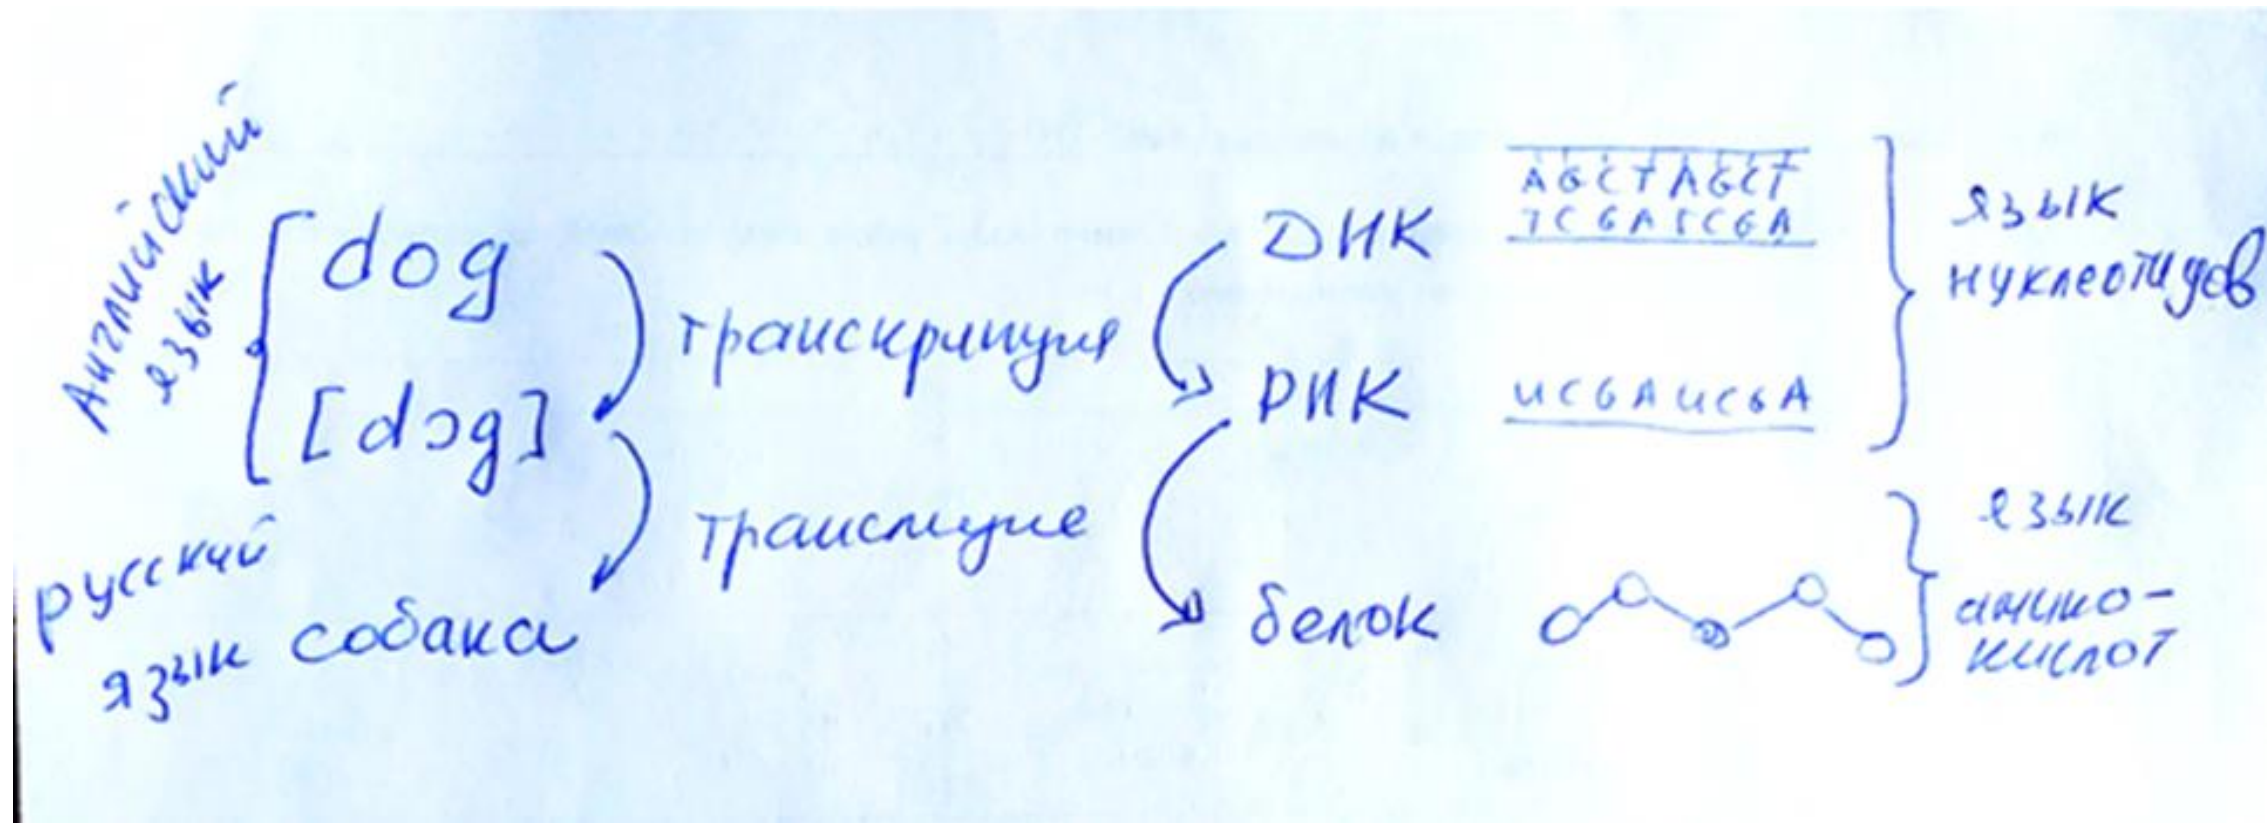 Английский
язык
dog
[dɔg]
русский
язык собака
транскрипция
трансляция
ДНК
AGCTAGCT
TCGATCGA
РНК
UCGAUCGA
белок
язык
нуклеотидов
язык
амино-
кислот